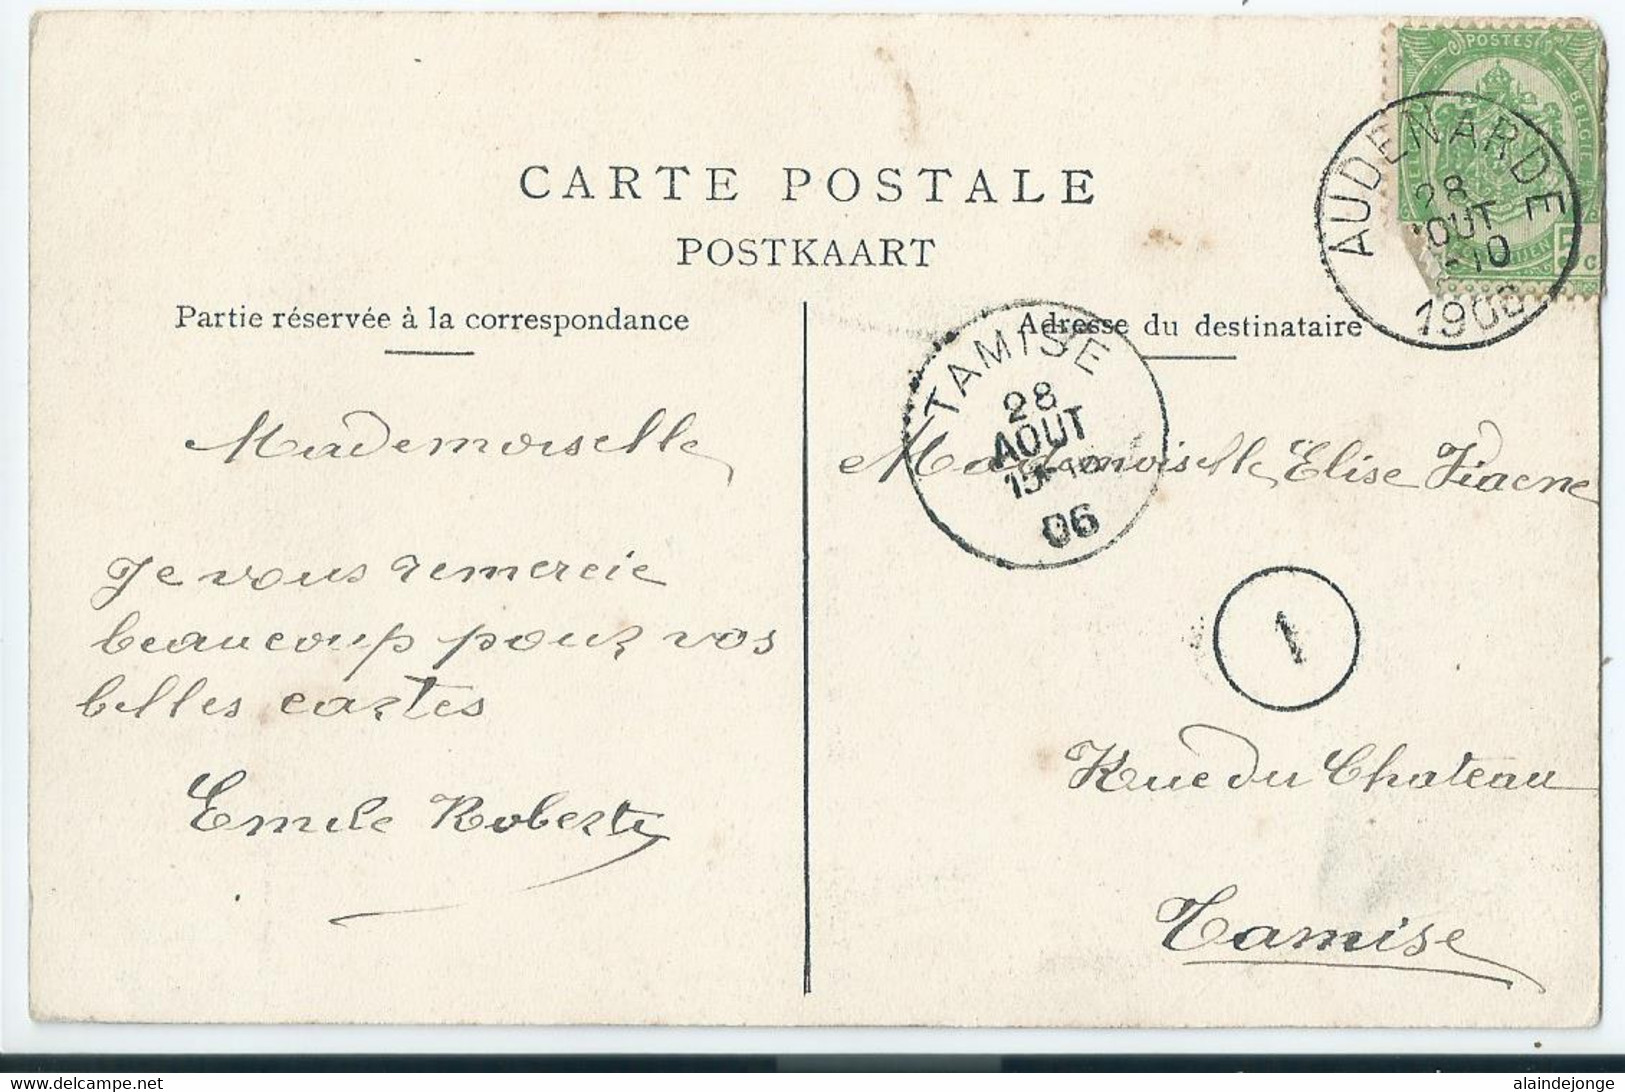 CARTE POSTALE
POSTKAART
Partie réservée à la correspondance
Adresse du destinataire
POSTES
BELGIE
AUDENARDE
28
AOUT
-10
1906
TAMISE
28
AOUT
15-
06
Mademoiselle
Je vous remercie
beaucoup pour vos
belles cartes
Emile Roberti
Mademoiselle Elise Fiacne
1
Rue du Chateau
Tamise
alaindejonge